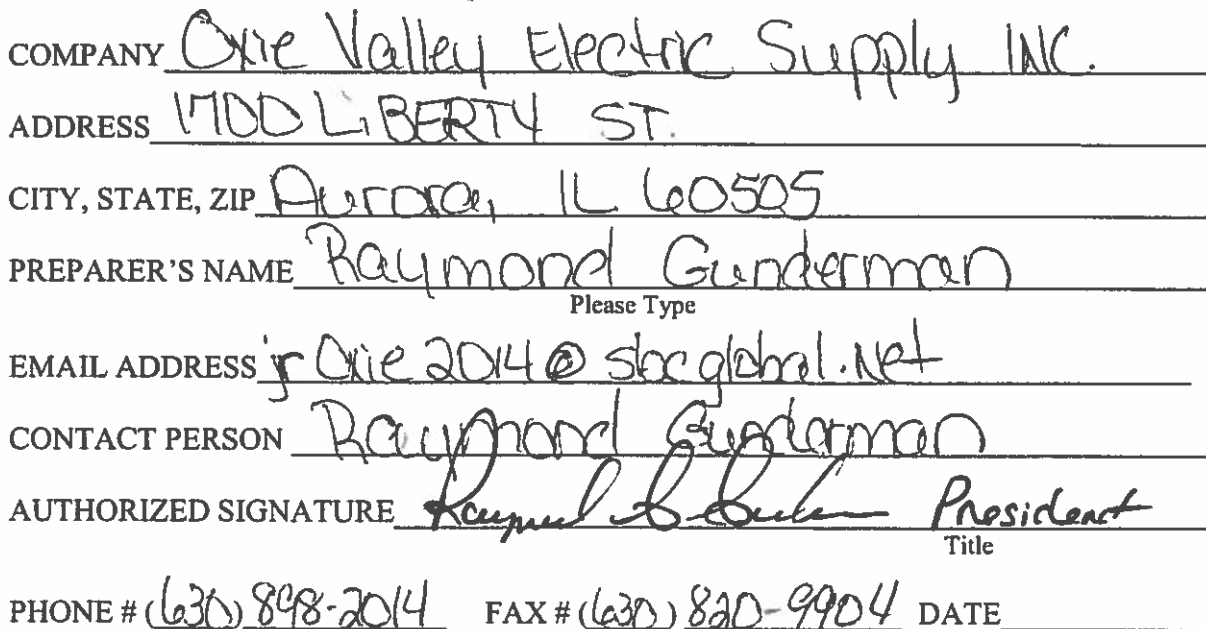 COMPANY Oxie Valley Electric Supply INC.
ADDRESS 1700 LiBERTY ST.
CITY, STATE, ZIP Aurora, IL 60505
PREPARER'S NAME Raymond Gunderman
Please Type
EMAIL ADDRESS jr Oxie 2014@sbcglobal.Net
CONTACT PERSON Raymond Gunderman
AUTHORIZED SIGNATURE President
Title
PHONE # (630) 898-2014 FAX # (630) 820-9904 DATE